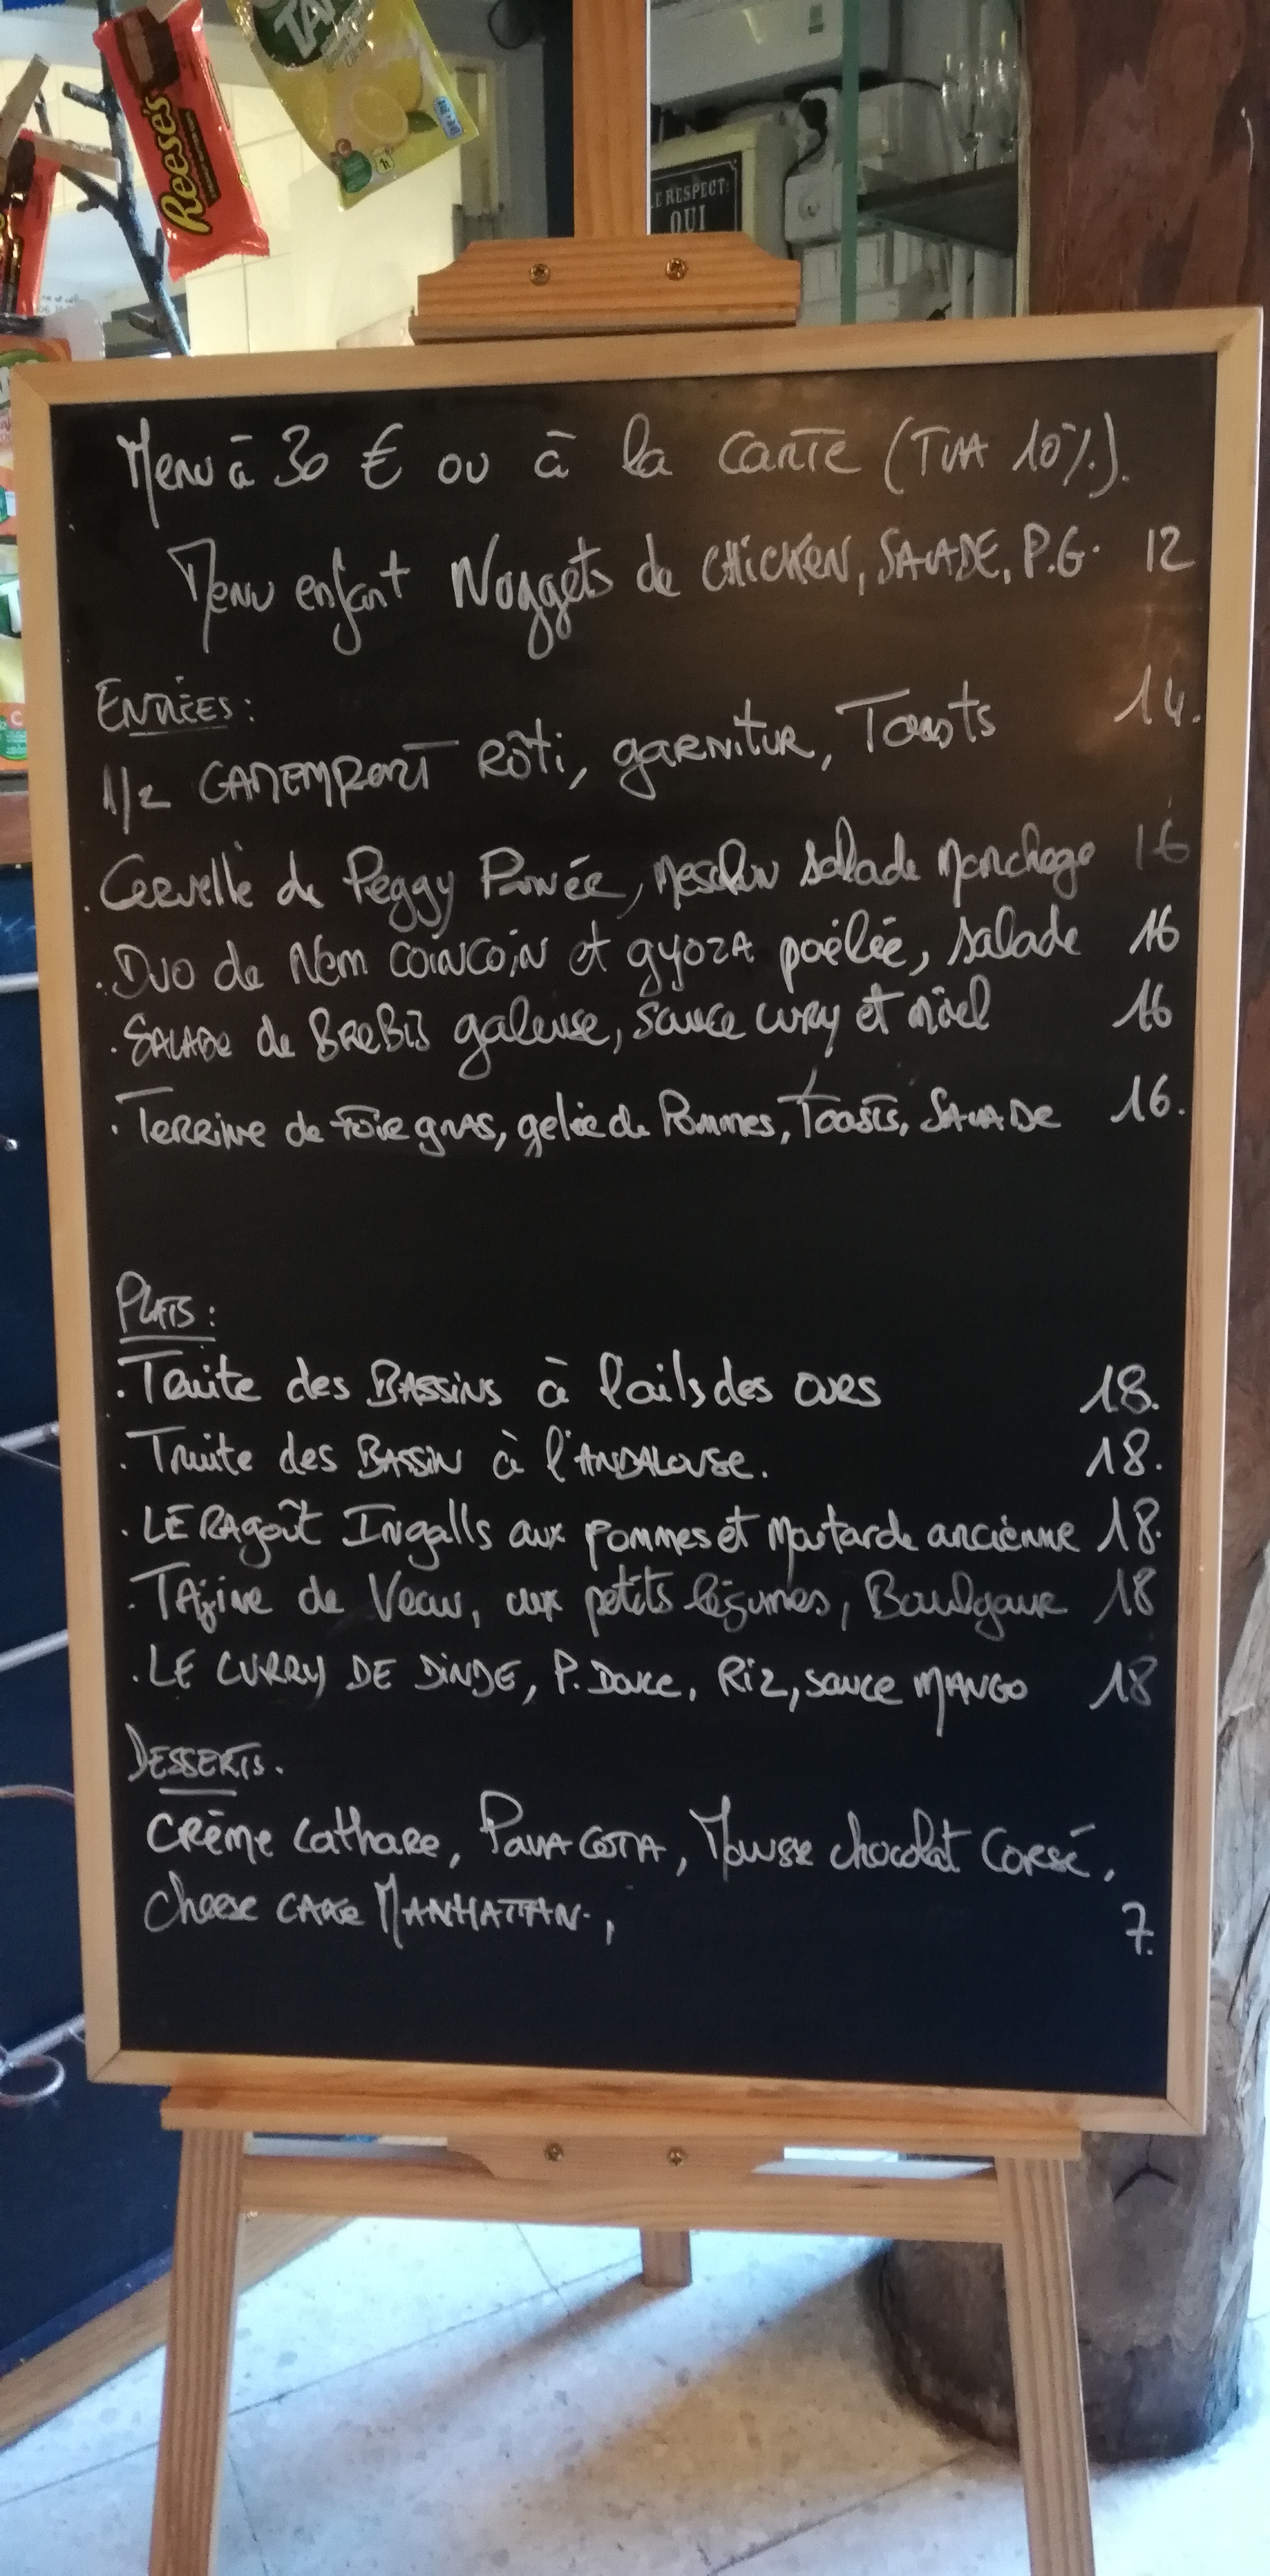 Reese's
TAN
LE RESPECT:
OUI
Menu à 30 € ou à la carte (TVA 10%).
Menu enfant Nuggets de CHICKEN, SALADE, P.G. 12
ENTRÉES:
1/2 CAMEMBERT Rôti, garnitur, Toasts 14.
. Cervelle de Peggy Panée, Mesclun salade Manchego 16
. Duo de Nem COINCOIN et gyoza poêlée, salade 16
. SALADE de BREBIS galeuse, sauce cury et miel 16
. Terrine de foie gras, gelée de Pommes, Toasts, SALADE 16.
PLATS:
. Truite des BASSINS à l'ails des ours 18.
. Truite des BASSIN à l'ANDALOUSE. 18.
. LE RAgoût Ingalls aux pommes et Moutarde ancienne 18.
. TAjine de Veau, aux petits légumes, Boulgour 18
. LE CURRY DE DINDE, P. Douce, Riz, sauce MANGO 18
DESSERTS.
Crème Cathare, PANA COTTA, Mousse chocolat Corsé,
Cheese CAKE MANHATTAN., 7.